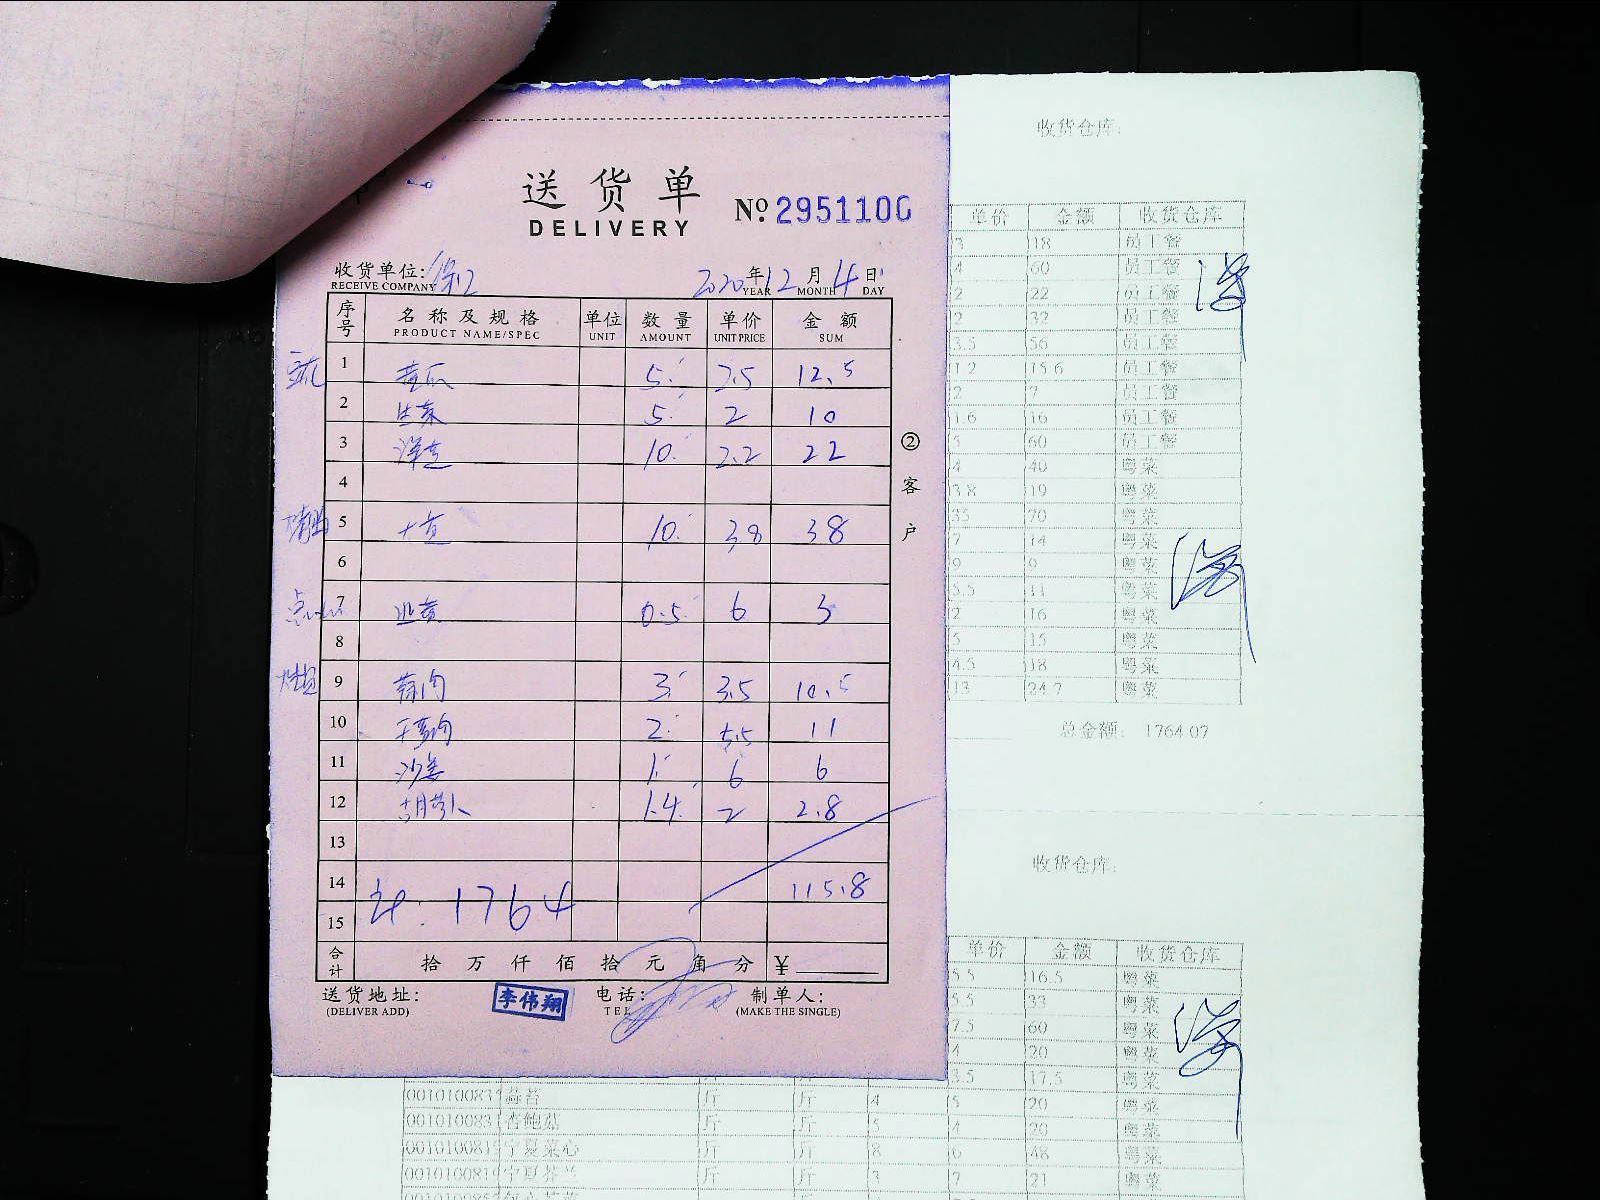 收货仓库:
送货单
DELIVERY
№ 2951100
收货单位:
RECEIVE COMPANY
2020年12月4日
YEAR MONTH DAY
序号 名称及规格 单位 数量 单价 金额
PRODUCT NAME/SPEC UNIT AMOUNT UNIT PRICE SUM
1 黄瓜 5 2.5 12.5
2 生菜 5 2 10
3 洋芫 10 2.2 22
4
5 土豆 10 3.8 38
6
7 0.5 6 3
8
9 3 3.5 10.5
10 2 5.5 11
11 沙姜 1 6 6
12 胡萝卜 1.4 2 2.8
13
14 115.8
1764
15
合计 拾 万 仟 佰 拾 元 角 分 ¥
送货地址:
(DELIVER ADD)
李伟翔
电话:
TEL
制单人:
(MAKE THE SINGLE)
②客户
单价 金额 收货仓库
3 18 员工餐
4 60 员工餐
2 22 员工餐
2 32 员工餐
3.5 56 员工餐
1.2 15.6 员工餐
2 7 员工餐
1.6 16 员工餐
5 60 员工餐
4 40 粤菜
3.8 19 粤菜
35 70 粤菜
7 14 粤菜
9 9 粤菜
5.5 11 粤菜
2 16 粤菜
5 15 粤菜
4.5 18 粤菜
13 24.7 粤菜
总金额: 1764.07
收货仓库:
单价 金额 收货仓库
5.5 16.5 粤菜
5.5 33 粤菜
7.5 60 粤菜
4 20 粤菜
3.5 17.5 粤菜
00101008 蒜苔 斤 斤 4 5 20 粤菜
00101008 杏鲍菇 斤 斤 5 4 20 粤菜
00101008 宁夏菜心 斤 斤 8 6 48 粤菜
00101008 宁夏芥兰 斤 斤 3 7 21 粤菜